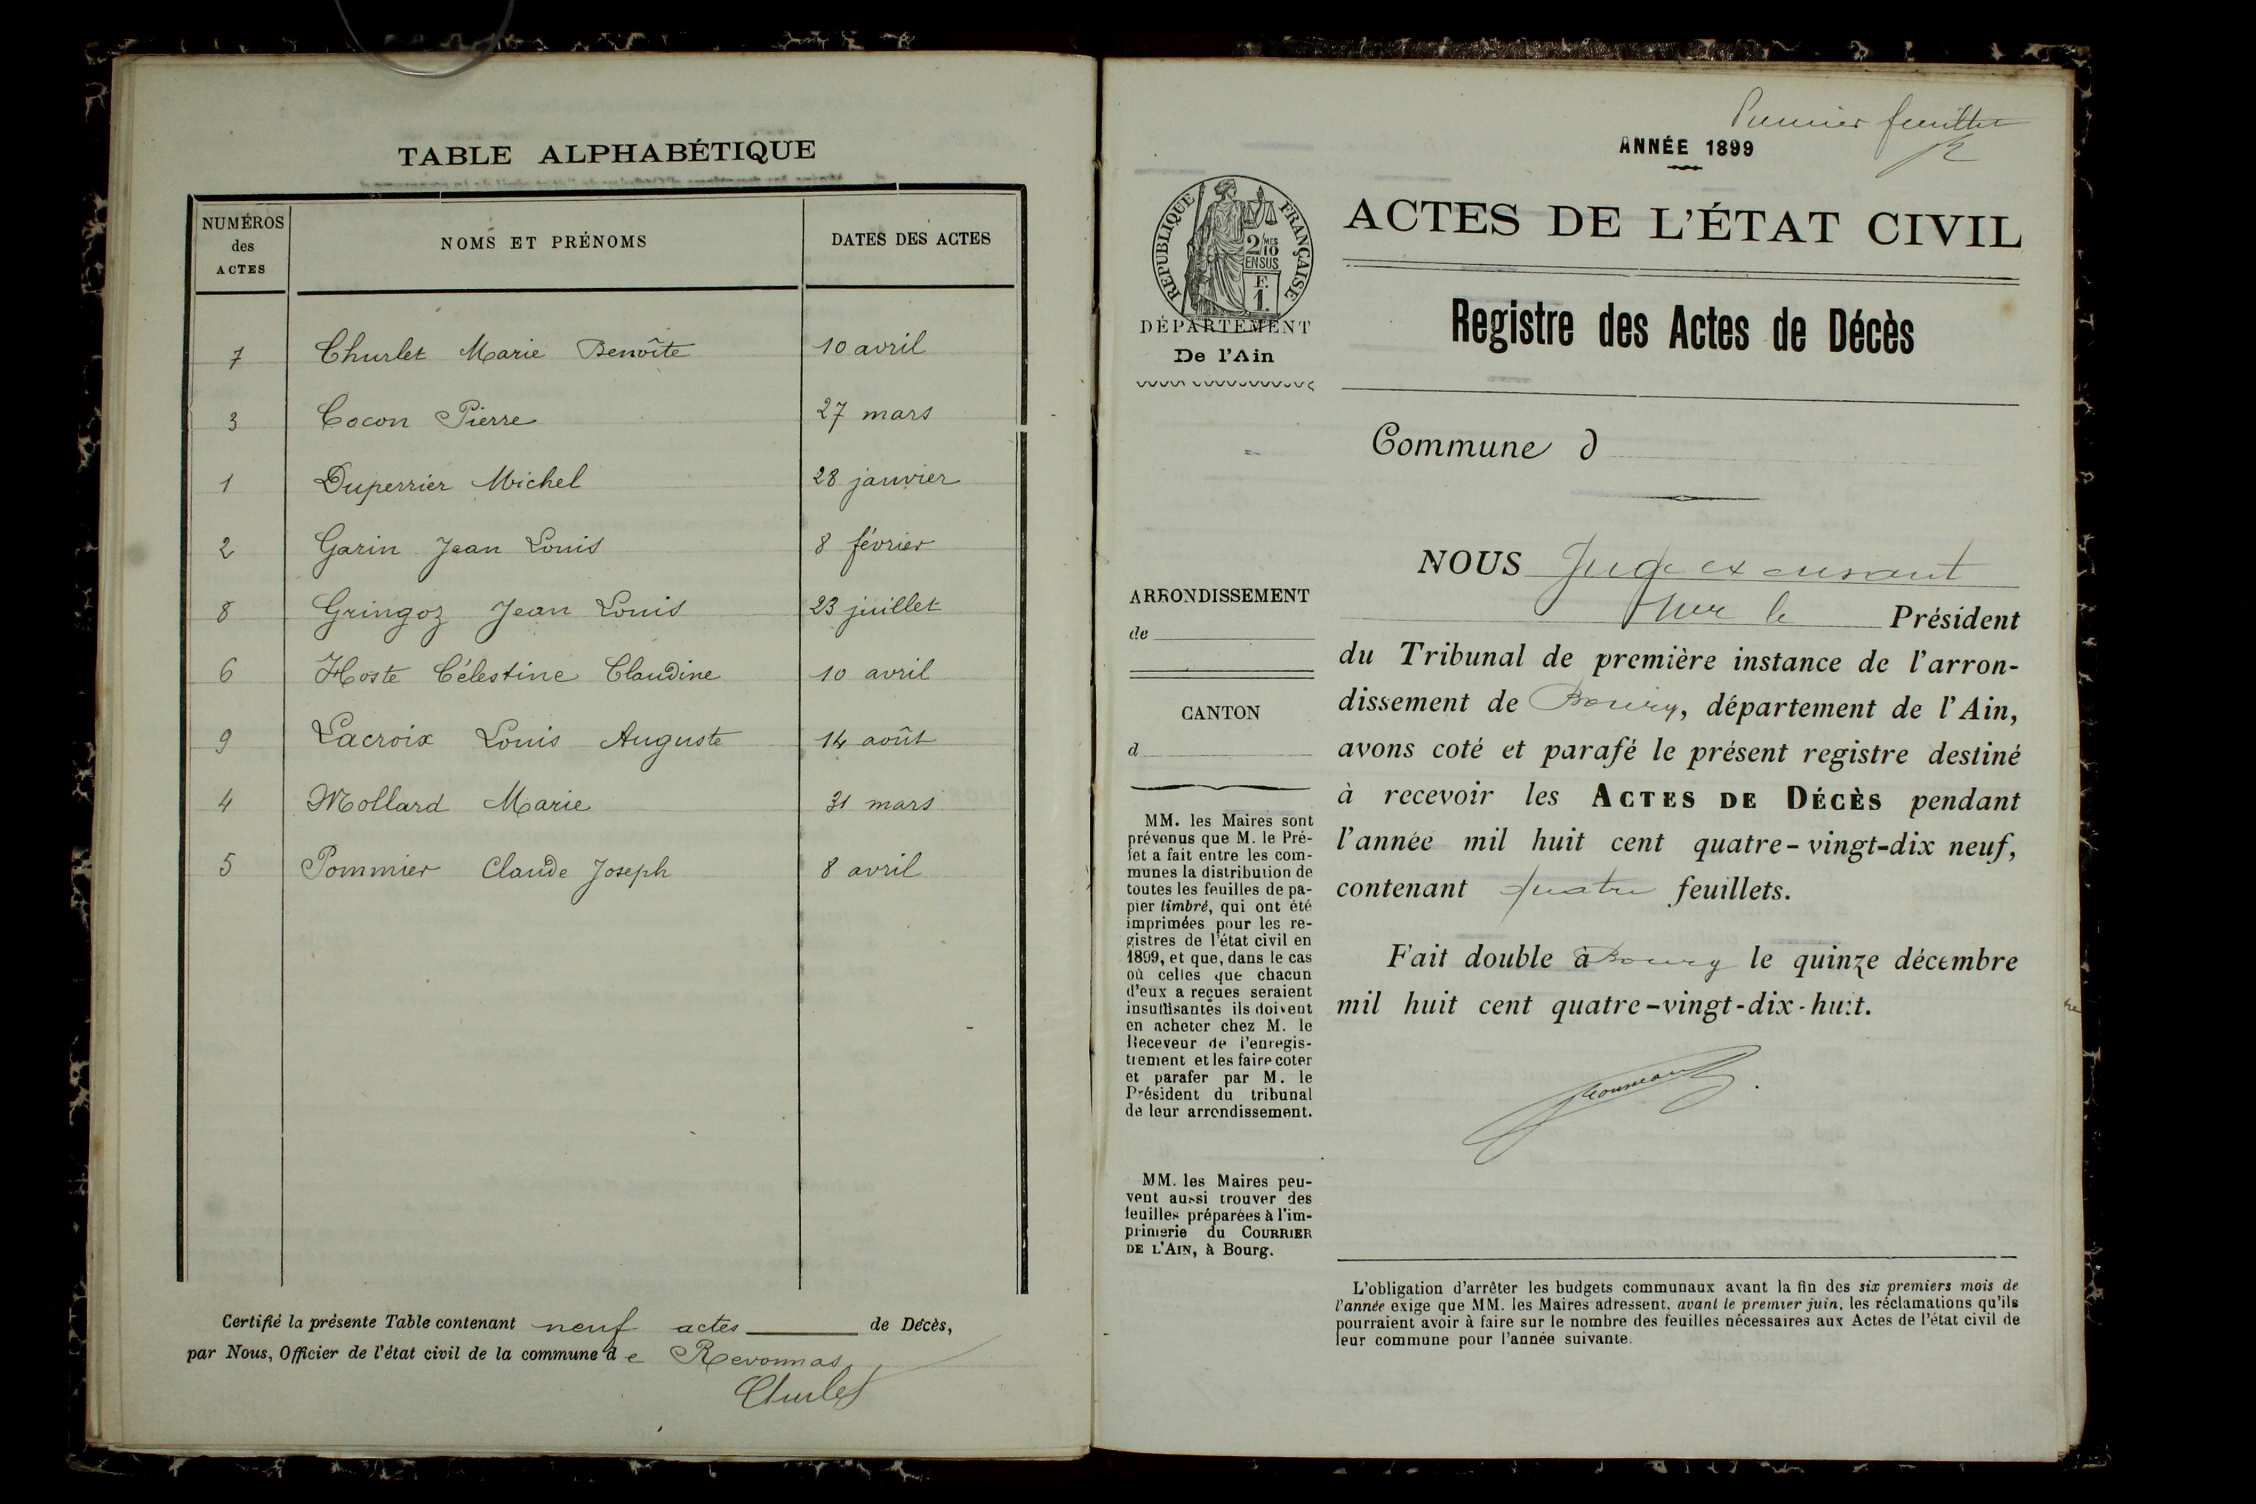 TABLE ALPHABÉTIQUE
NUMÉROS
des
ACTES
NOMS ET PRÉNOMS
DATES DES ACTES
7 Churlet Marie Benoîte 10 avril
3 Cocon Pierre 27 mars
1 Duperrier Michel 28 janvier
2 Garin Jean Louis 8 février
8 Gringoz Jean Louis 23 juillet
6 Hoste Célestine Claudine 10 avril
9 Lacroix Louis Auguste 14 août
4 Mollard Marie 31 mars
5 Pommier Claude Joseph 8 avril
Certifié la présente Table contenant neuf actes de Décès,
par Nous, Officier de l'état civil de la commune de Revonnas
Churlet
Premier feuillet
ANNÉE 1899
ACTES DE L'ÉTAT CIVIL
RÉPUBLIQUE FRANÇAISE
2/10 MES
EN SUS
F.
1.
DÉPARTEMENT
De l'Ain
Registre des Actes de Décès
Commune d
ARRONDISSEMENT
de
CANTON
d
MM. les Maires sont
prévenus que M. le Pré-
fet a fait entre les com-
munes la distribution de
toutes les feuilles de pa-
pier timbré, qui ont été
imprimées pour les re-
gistres de l'état civil en
1899, et que, dans le cas
où celles que chacun
d'eux a reçues seraient
insuffisantes ils doivent
en acheter chez M. le
Receveur de l'enregis-
trement et les faire coter
et parafer par M. le
Président du tribunal
de leur arrondissement.
MM. les Maires peu-
vent aussi trouver des
feuilles préparées à l'im-
primerie du COURRIER
DE L'AIN, à Bourg.
NOUS Juge
le Président
du Tribunal de première instance de l'arron-
dissement de Bourg, département de l'Ain,
avons coté et parafé le présent registre destiné
à recevoir les ACTES DE DÉCÈS pendant
l'année mil huit cent quatre-vingt-dix neuf,
contenant quatre feuillets.
Fait double à Bourg le quinze décembre
mil huit cent quatre-vingt-dix-huit.
L'obligation d'arrêter les budgets communaux avant la fin des six premiers mois de
l'année exige que MM. les Maires adressent, avant le premier juin, les réclamations qu'ils
pourraient avoir à faire sur le nombre des feuilles nécessaires aux Actes de l'état civil de
leur commune pour l'année suivante.